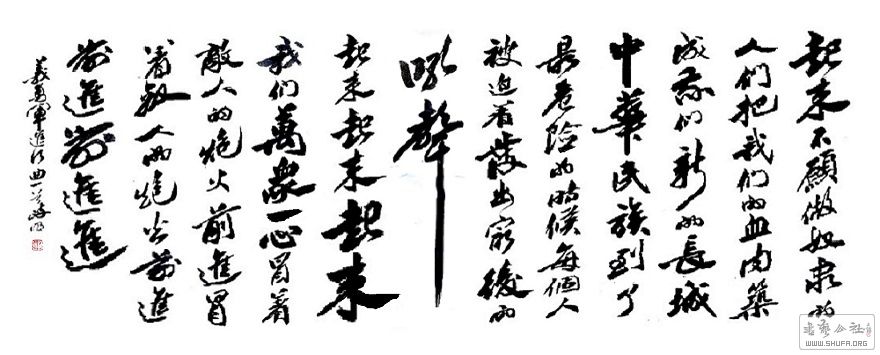 起来不願做奴隶的
人们把我们的血肉築
成我们新的長城
中華民族到了
最危险的時候每個人
被迫着發出最後的
吼聲
起来起来起来
我们萬衆一心冒着
敵人的炮火前進冒
着敵人的炮火前進
前進前進進
義勇軍進行曲一首
书艺公社
WWW.SHUFA.ORG